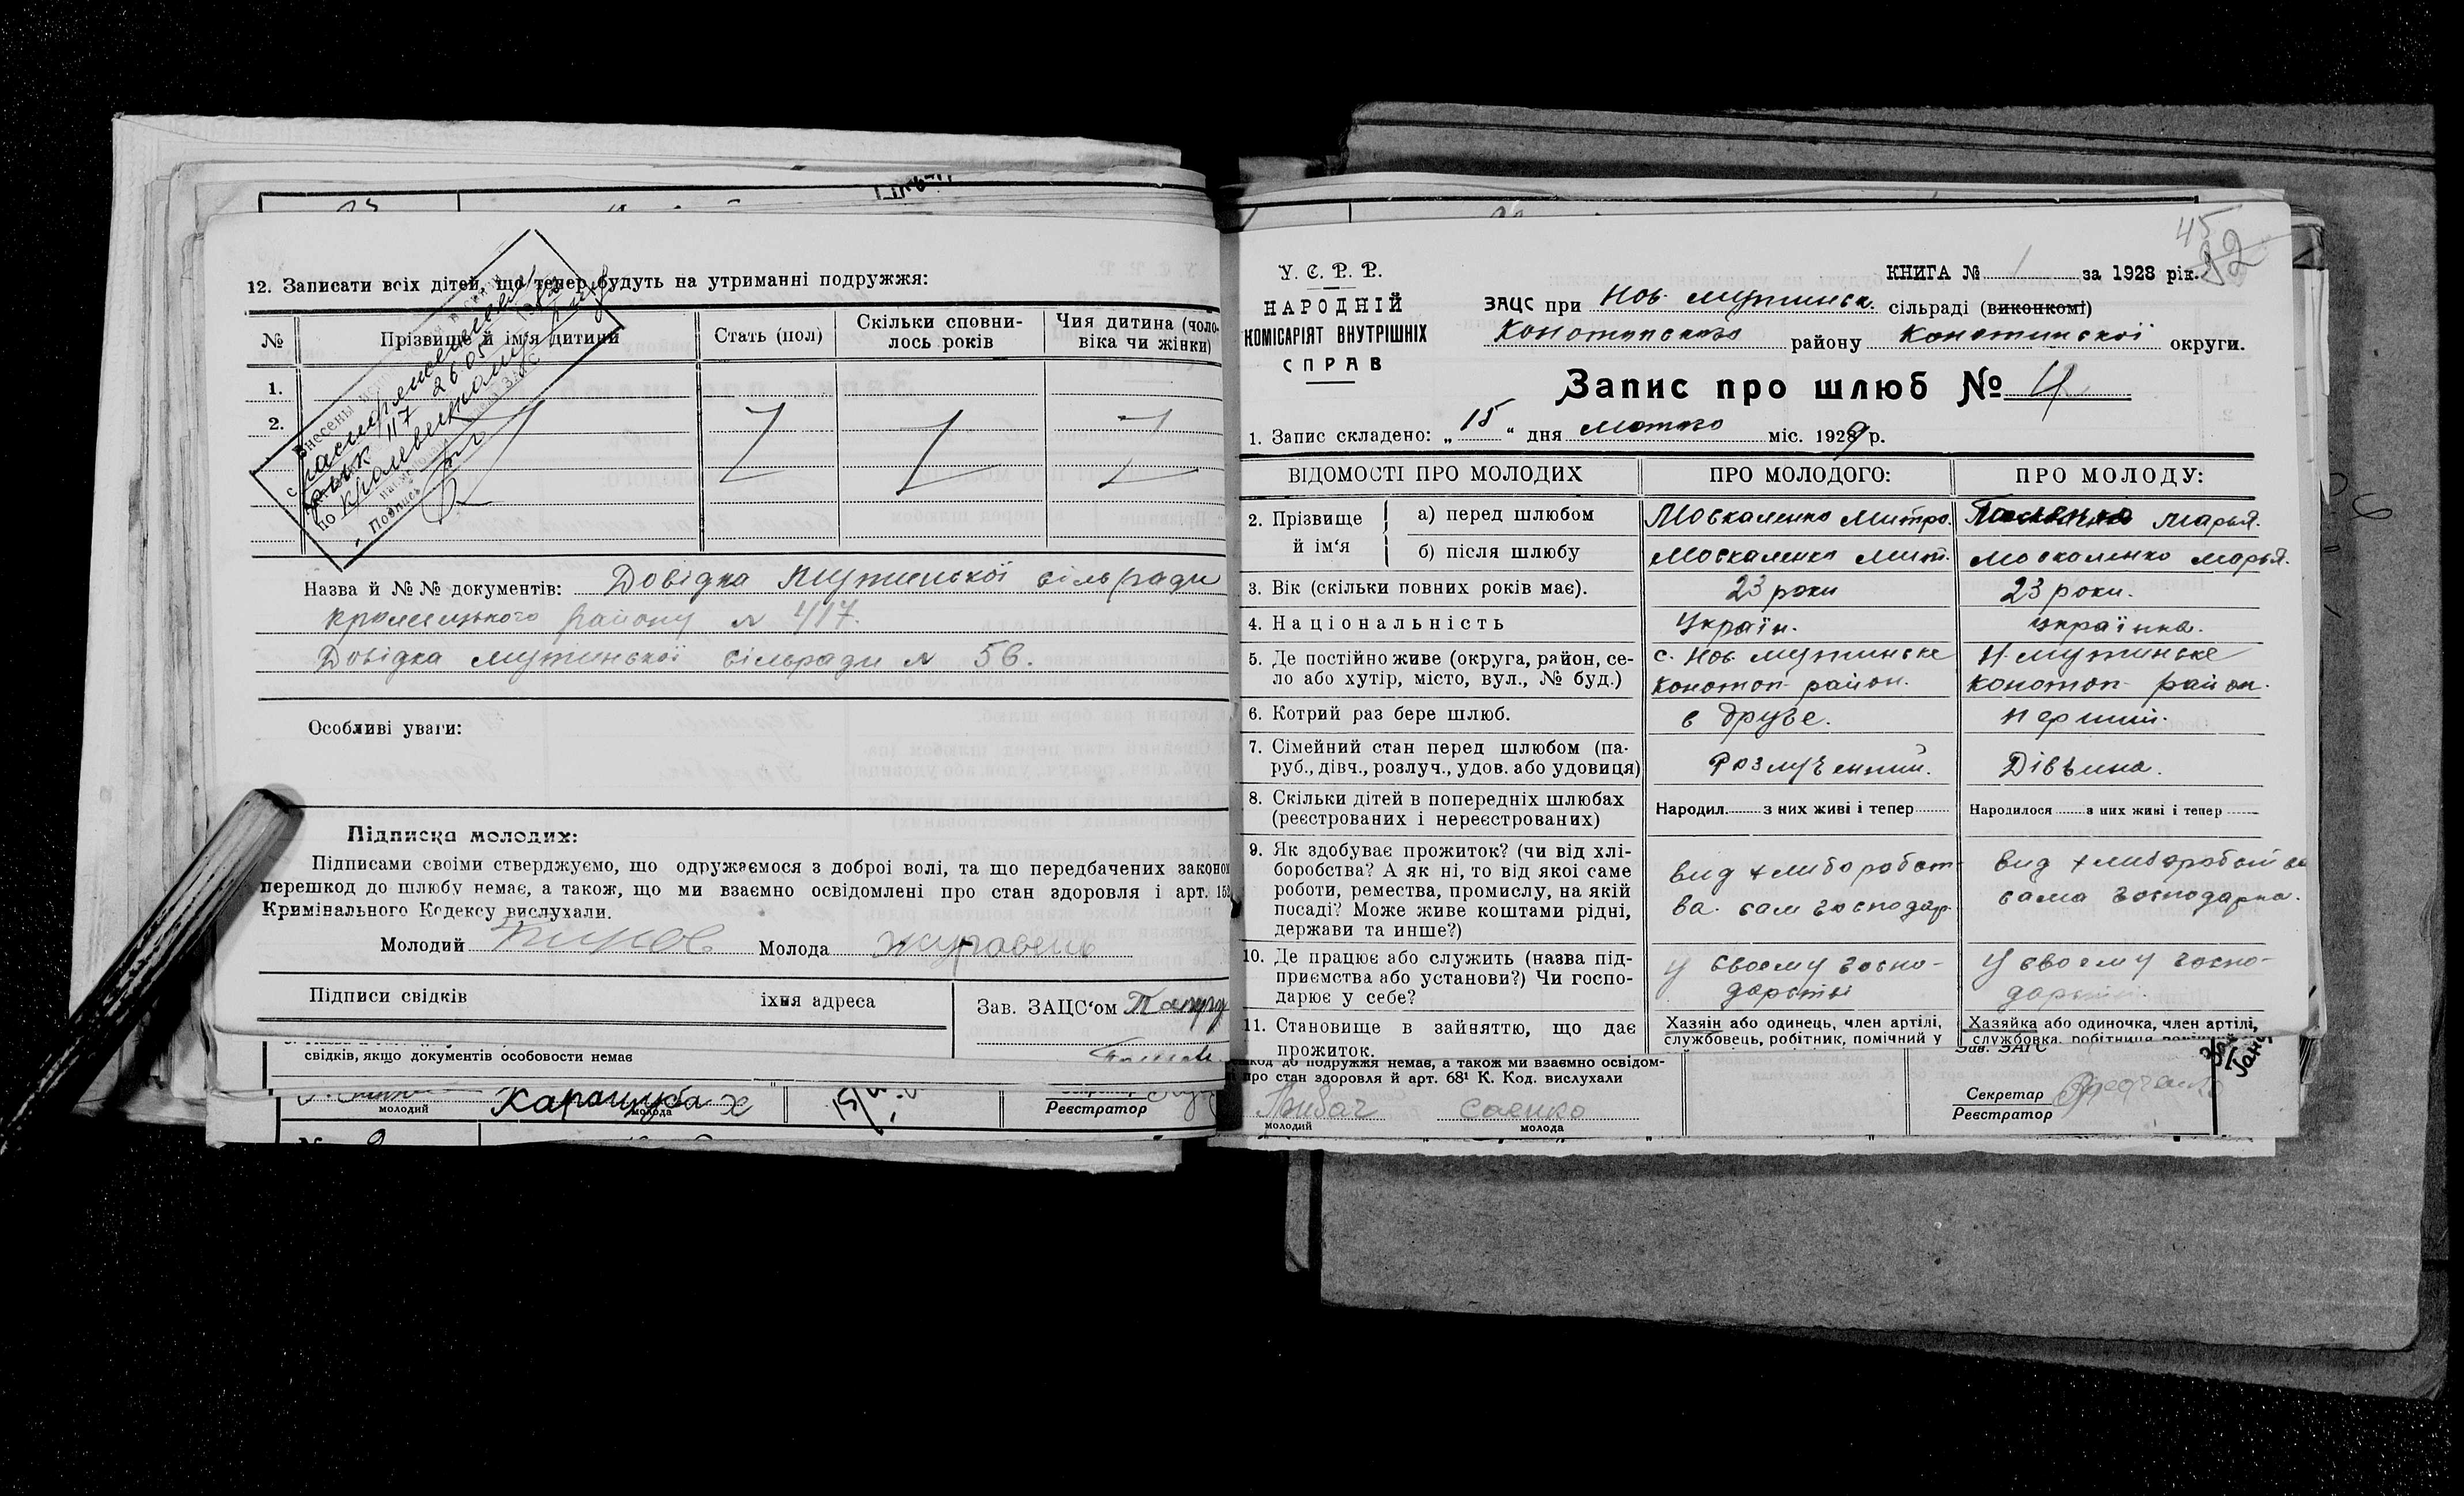 12. Записати всіх дітей, що тепер будуть на утриманні подружжя:
№ Прізвище й ім'я дитини Стать (пол) Скільки сповни- Чия дитина (чоло-
лось років віка чи жінки)
1.
2.
Внесены
117 26.05
по
Подпись
Назва й №№ документів: Довідка Мутинської сільради
району № 417.
Довідка мутинської сільради № 56.
Особливі уваги:
Підписка молодих:
Підписами своїми стверджуємо, що одружаємося з доброї волі, та що передбачених законом
перешкод до шлюбу немає, а також, що ми взаємно освідомлені про стан здоровля і арт. 152
Кримінального Кодексу вислухали.
Молодий Молода Журавель
Підписи свідків їхня адреса Зав. ЗАЦС'ом
свідків, якщо документів особовости немає
молодий Карацюба х молода Реєстратор
45
32
У. С. Р. Р.
НАРОДНІЙ
КОМІСАРІЯТ ВНУТРІШНІХ
СПРАВ
КНИГА № 1 за 1928 рік.
ЗАЦС при Нов. мутинськ. сільраді (виконкомі)
Конотопского району Конотопської округи.
Запис про шлюб № 4
1. Запис складено: „15“ дня лютого міс. 1929 р.
ВІДОМОСТІ ПРО МОЛОДИХ ПРО МОЛОДОГО: ПРО МОЛОДУ:
2. Прізвище й ім'я а) перед шлюбом Москаленко Митро. Марья.
б) після шлюбу Москаленко Мит. Москаленко Марья.
3. Вік (скільки повних років має). 23 роки 23 роки.
4. Національність Україн. українка.
5. Де постійно живе (округа, район, се- с. Нов. мутинське Н. мутинське
ло або хутір, місто, вул., № буд.) Конотоп район. Конотоп район.
6. Котрий раз бере шлюб. в друге. перший.
7. Сімейний стан перед шлюбом (па- Розлученний. Дівчина.
руб., дівч., розлуч., удов. або удовиця)
8. Скільки дітей в попередніх шлюбах Народил. з них живі і тепер Народилося з них живі і тепер
(реєстрованих і нереєстрованих)
9. Як здобуває прожиток? (чи від хлі-
боробства? А як ні, то від якої саме вид хлиборобст- вид хлиборобства
роботи, ремества, промислу, на якій
посаді? Може живе коштами рідні, ва. сам господар сама господарка.
держави та инше?)
10. Де працює або служить (назва під- У своему госпо- У своему госпо-
приємства або установи?) Чи госпо- дарстві дарстві.
дарює у себе?
11. Становище в зайняттю, що дає Хазяїн або одинець, член артілі, Хазяйка або одиночка, член артілі,
прожиток. службовець, робітник, помічний у службовка, робітниця
до подружжя немає, а також ми взаємно освідом-
про стан здоровля й арт. 68¹ К. Код. вислухали
Зав. ЗАГС
Саенко Секретар
молодий молода Реєстратор